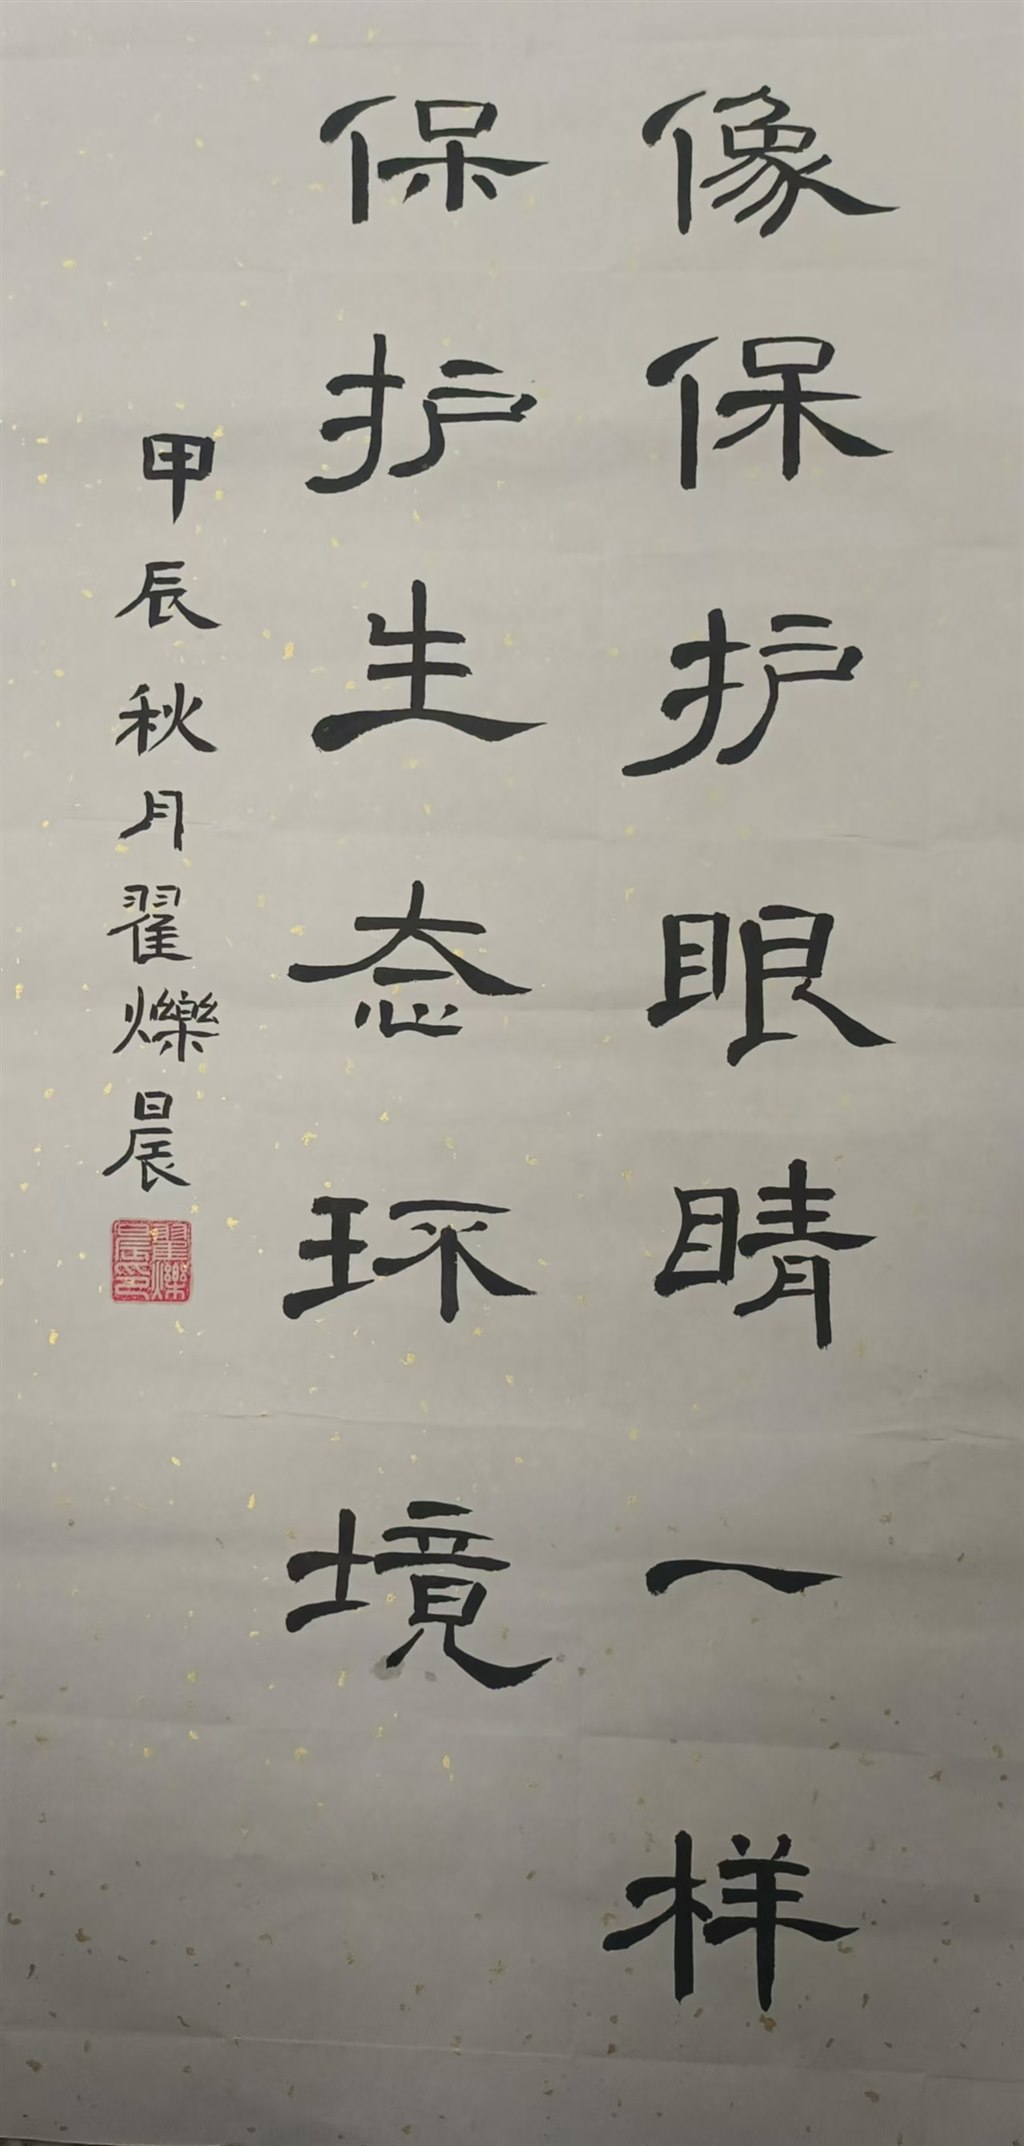 像保护眼睛一样
保护生态环境
甲辰秋月翟爍晨
翟爍晨印